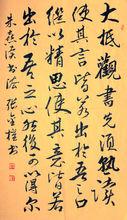 大抵觀書先須熟讀
使其言皆若出於吾之口
繼以精思使其意皆若
出於吾之心然後可以得爾
朱熹讀書法 張書